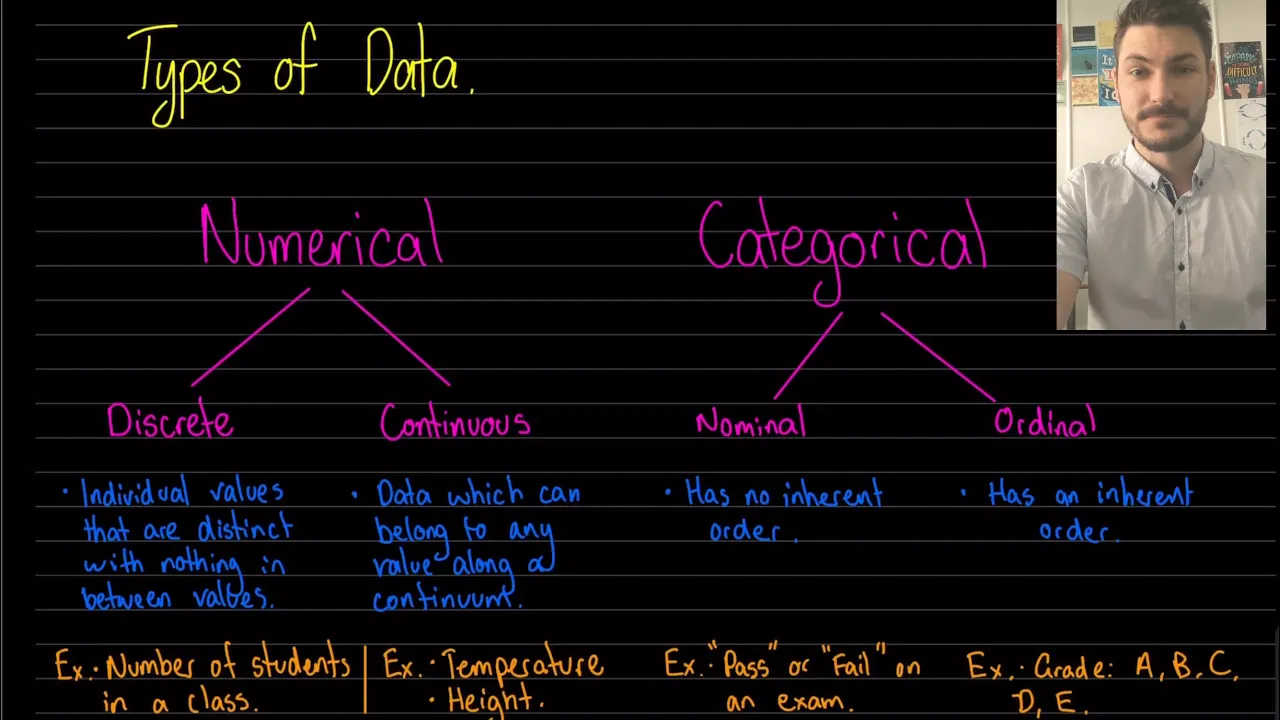 Types of Data.
Numerical
Categorical
Discrete
Continuous
Nominal
Ordinal
• Individual values
that are distinct
with nothing in
between values.
• Data which can
belong to any
value along a
continuum.
• Has no inherent
order.
• Has an inherent
order.
Ex. • Number of students
in a class.
Ex. • Temperature
• Height.
Ex. • "Pass" or "Fail" on
an exam.
Ex. • Grade: A, B, C,
D, E.
DIFFICULT